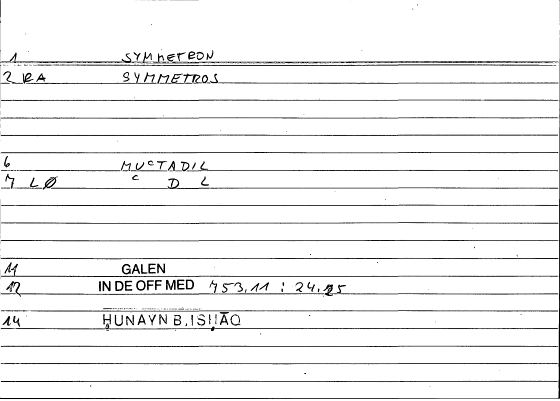 1 SYMMETRON
2 RA SYMMETROS
6 MUCTADIL
7 LØ C D L
11 GALEN
12 IN DE OFF MED 753.11 : 24.25
14 ḤUNAYN B. ISḤĀQ